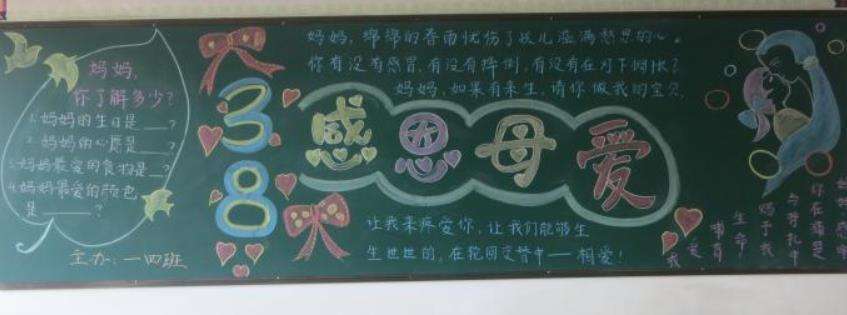 妈妈,
你了解多少?
1.妈妈的生日是___?
2.妈妈的心愿是___?
3.妈妈最爱的食物是__?
4.妈妈最爱的颜色
是____?
主办:一四班
38
妈妈,绵绵的春雨忧伤了女儿溢满愁思的心。
你有没有感冒,有没有摔倒,有没有在月下惆怅?
妈妈,如果有来生,请你做我的宝贝。
感恩母爱
让我来疼爱你,让我们能够生
生世世的,在轮回交替中——相爱!
妈妈感谢
你在痛楚
与挣扎中
给予我
生命!
哺育
我
爱